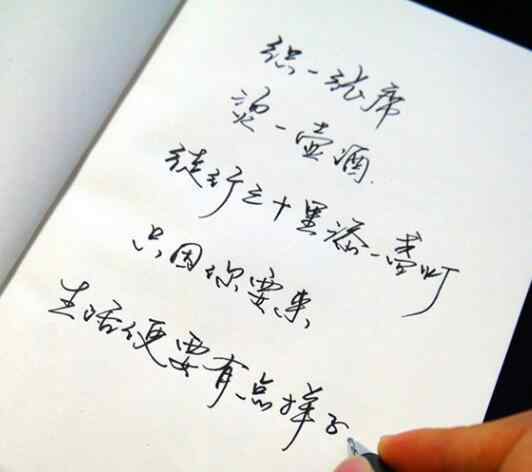 织一张席
烫一壶酒
徒行三十里添一盏灯
只因你要来
生活便要有点样子